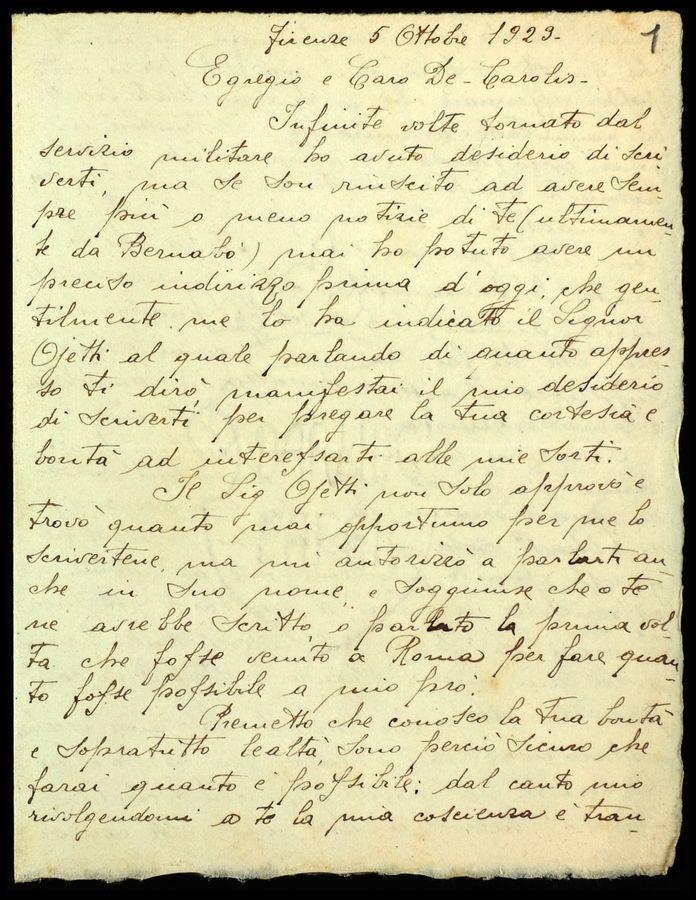 Firenze 5 Ottobre 1923-
1
Egregio e Caro De-Carolis-
Infinite volte tornato dal
servizio militare ho avuto desiderio di scri
verti, ma se son riuscito ad avere sem-
pre più o meno notizie di te (ultimamen-
te da Bernabò) mai ho potuto avere un
preciso indirizzo prima d'oggi, che gen-
tilmente me lo ha indicato il Signor
Ojetti al quale parlando di quanto appres-
so ti dirò, manifestai il mio desiderio
di scriverti per pregare la tua cortesia e
bontà ad interessarti alle mie sorti.
Il Sig Ojetti non solo approvò e
trovò quanto mai opportuno per me lo
scrivertene, ma mi autorizzò a parlarti an-
che in suo nome, e soggiunse che o te
ne avrebbe scritto, o parlato la prima vol-
ta che fosse venuto a Roma per fare quan-
to fosse possibile a mio prò.
Premetto che conosco la tua bontà
e sopratutto lealtà, sono perciò sicuro che
farai quanto è possibile; dal canto mio
rivolgendomi a te la mia coscienza è tran-